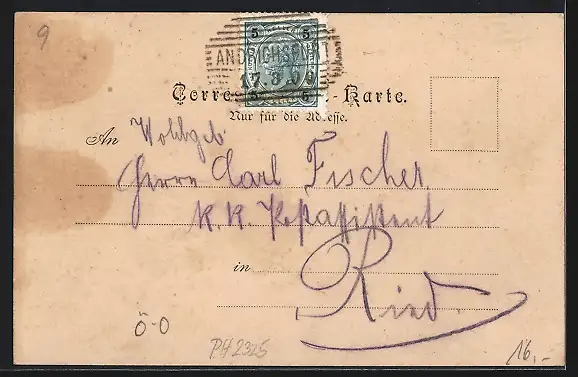 9
5 5
ANDRICHSFURT
17.8.00
Corre -Karte.
Nur für die Adresse.
An Wohlgeb
Herrn Carl Fischer
K. K. Postassistent
in Ried.
Ö-O
PH2325
16,-